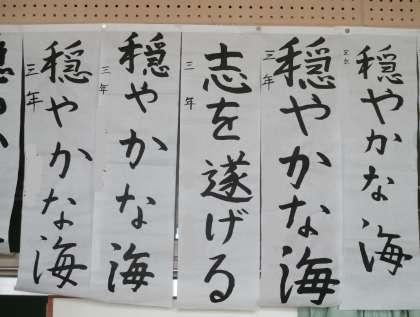 穏やかな海
穏やかな海
三年
志を遂げる
三年
穏やかな海
三年
穏やかな海
三年